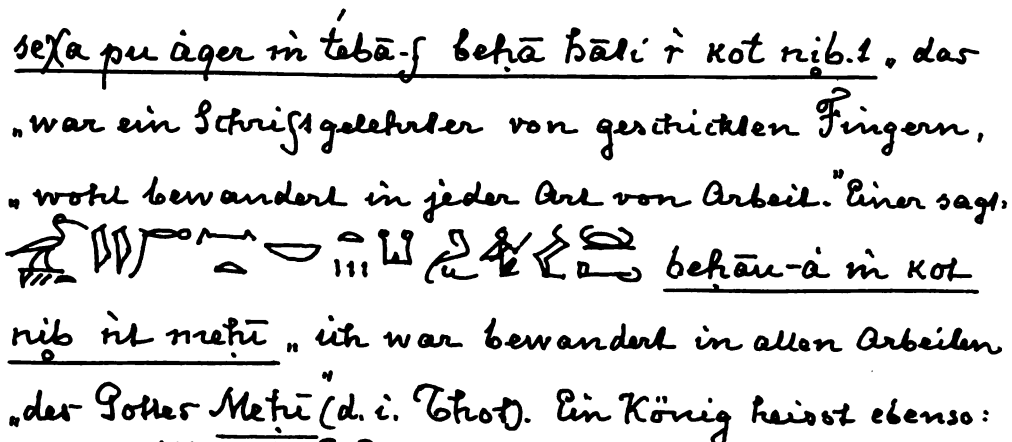 seχa pu àger m̀ tebā-f beḥā hāti r̀ kot nib.t „das
„war ein Schriftgelehrter von geschickten Fingern,
„wohl bewandert in jeder Art von Arbeit.” Einer sagt:
beḥāu-à m̀ kot
nib ǹt meḥī „ich war bewandert in allen Arbeiten
„des Gottes Meḥī” (d. i. Thot). Ein König heisst ebenso: